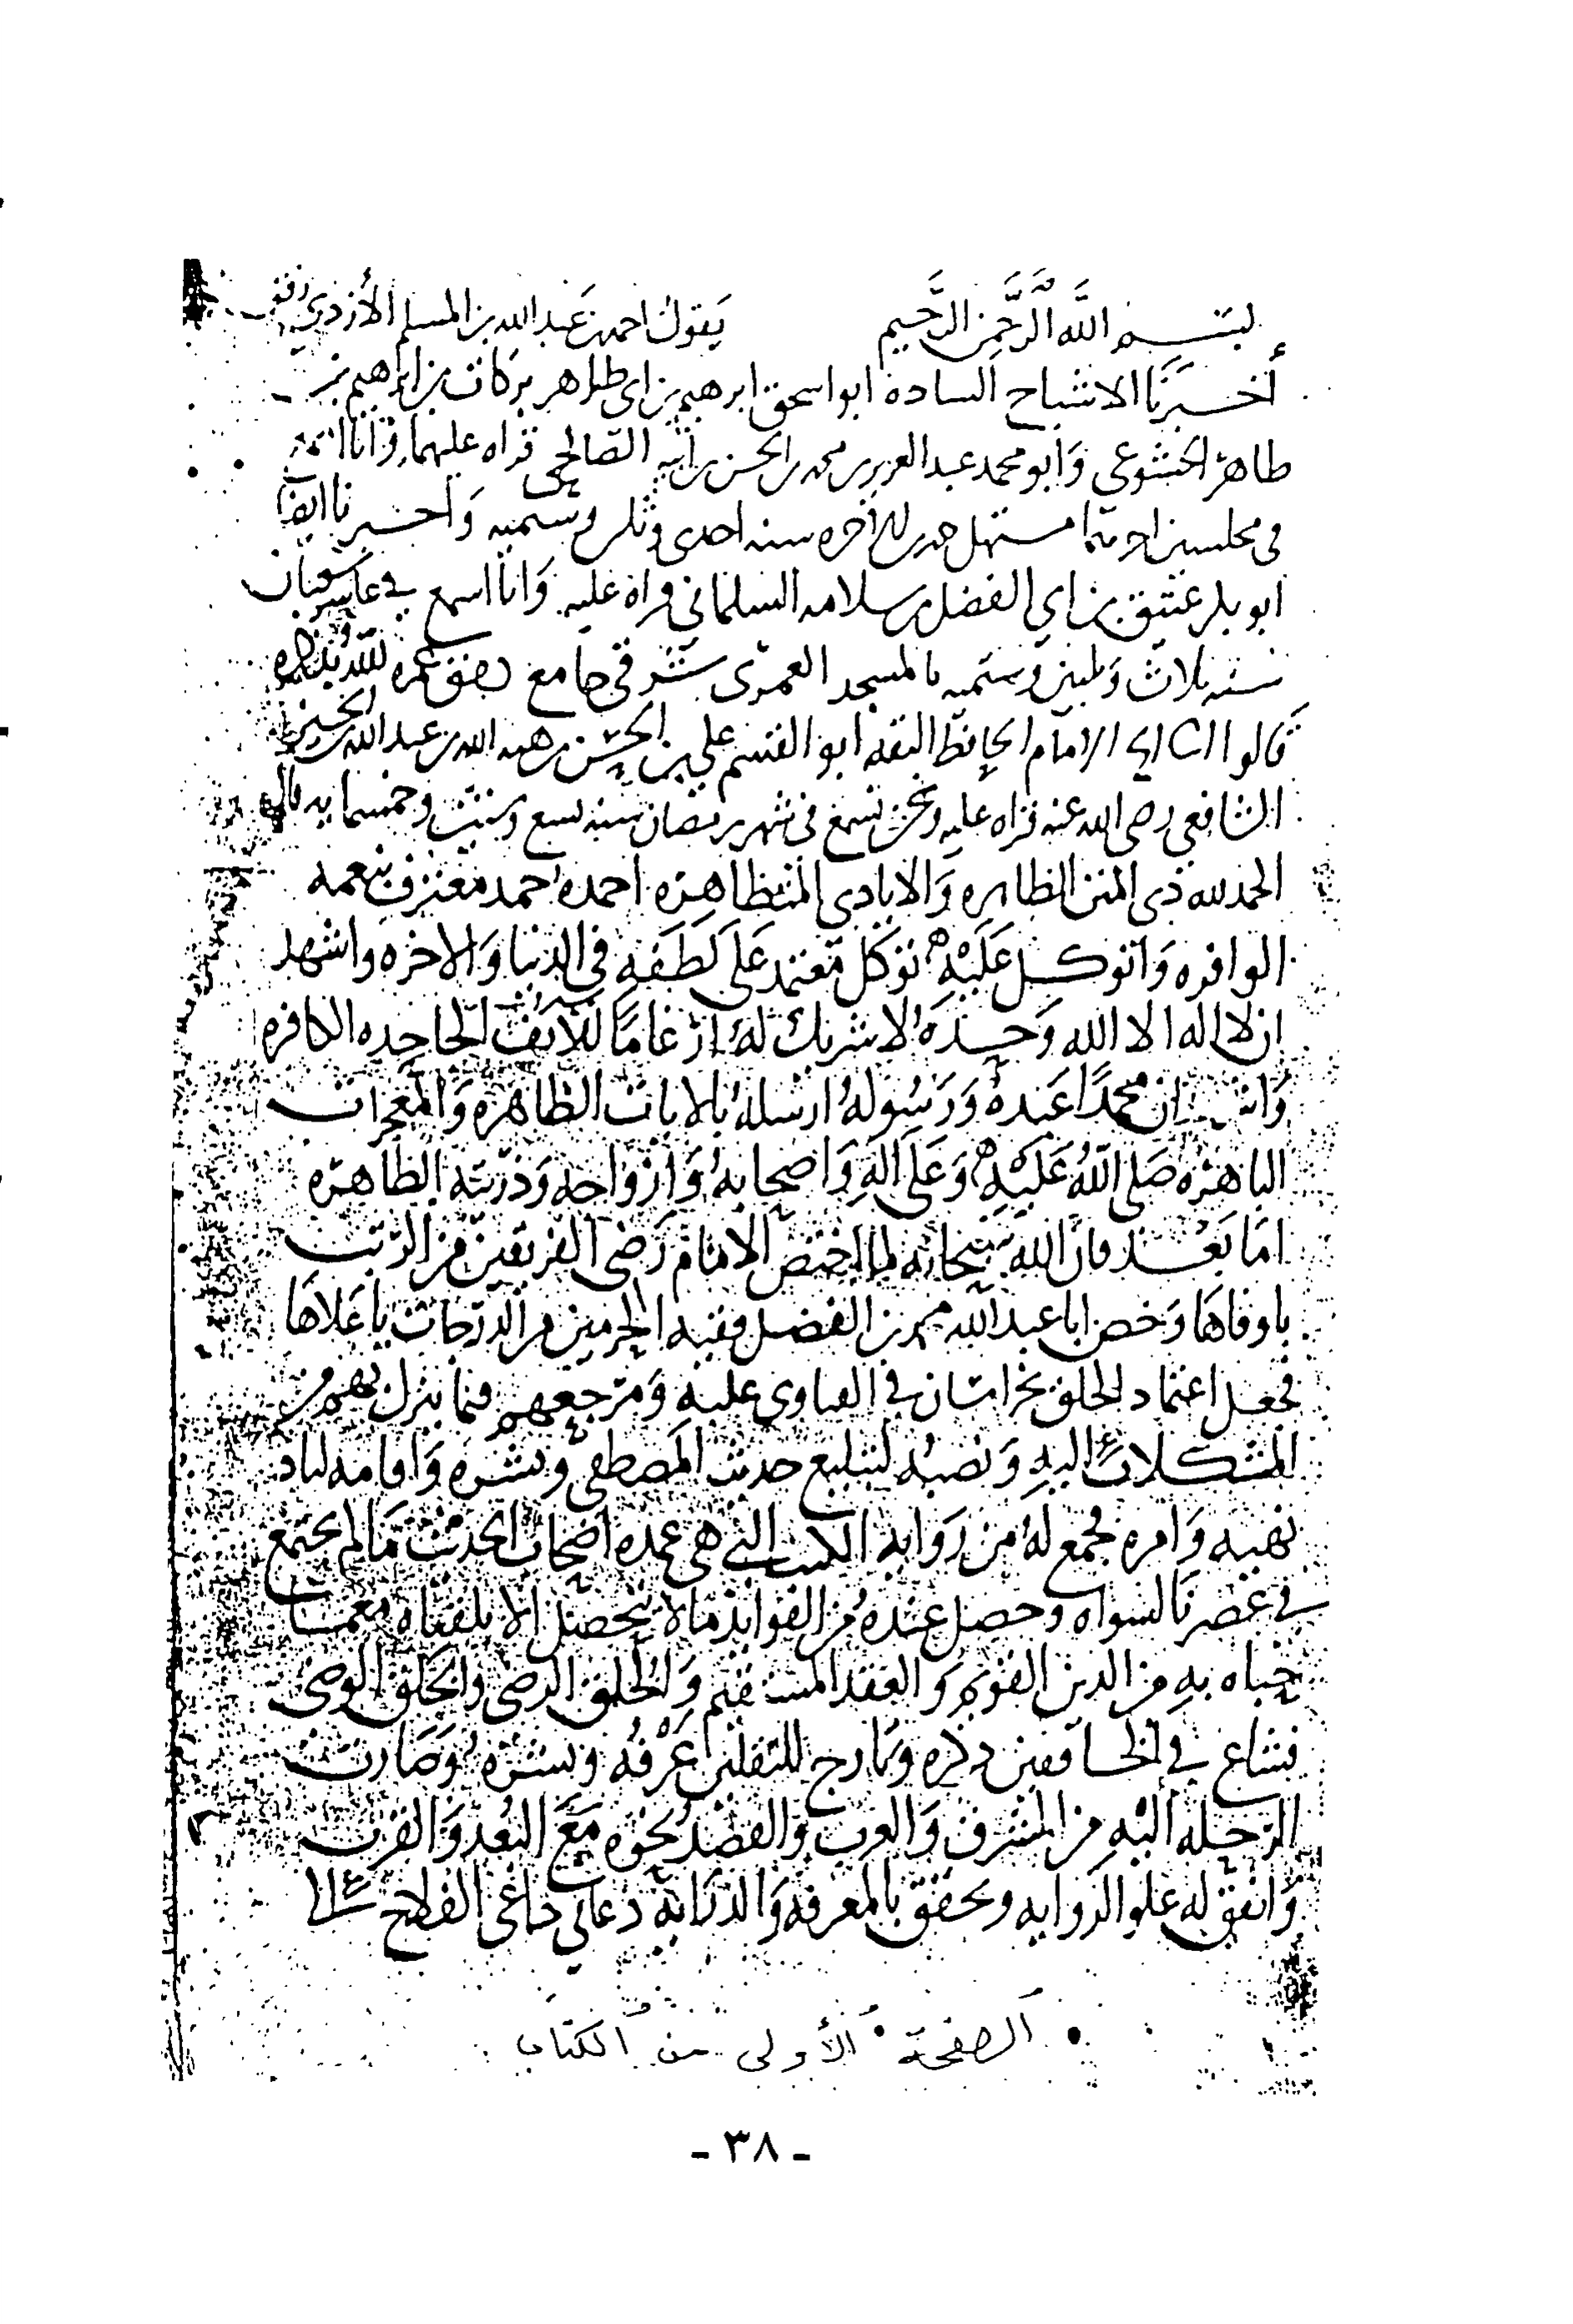 بسم الله الرَّحمن الرَّحيم يَقول احمد بن عَبد الله بن المسلم الأزدي
أخبرَنَا الاشياخ السادة ابو اسحق ابرهيم بن ابي طاهر بركات بن ابراهيم بن
طاهر الخشوعي وَابو محمد عبد العزيز بن محمد بن الحسن بن ابيه الصَالحي قراه عليهما وَانا اسمع
في مجلسين اخرهما مستهل جمدى الآخره سنه احدى وثلثين وستميه وَاخبرنا ايضا
ابو بكر عتيق بن ابي الفضل بن سلامه السلماني قراه عليه وَانا اسمع في عاشر شعبان
سنه ثلاث وَثلثين وستميه بالمسجد العمرى شرقي جامع دمشق عمره الله بذكره
قَالوا انا الامام الحافظ الثقه ابو القسم علي بن الحسَن بن هبه الله بن عبد الله بن الحسين
الشافعي رضى الله عنه قراه عليه ونحن نسمع في شهر رمضان سنه سبع وستين وخمسمايه قال
الحمد لله ذى المنن الظاهره وَالايادي المتظاهره احمدهُ حمد معترف بنعمه
الوافره وَاتوكل عَليْهِ توكل معتمد عَلَى لُطفه في الدنيا وَالاخره واشهد
ان لا اله الا الله وَحدَهُ لا شريك لهُ ارغامًا للانف الجاحده الكافره
وَاشهد ان محمدًا عَبدهُ وَرَسُولهُ ارسلهُ بالايات الظاهره وَالمعجزات
الباهره صَلى اللهُ عَليْهِ وَعَلى آلهِ وَاصحابهُ وَازواجه وَذريته الطاهره
امَا بَعْد فان الله سبحانه لما اختص الامام رَضى الفريقين من الرتب
باوفاهَا وَخص ابا عبد الله محمد بن الفضل فقيه الحرمين من الدرجات باعلاهَا
فجعل اعتماد الخلق بخراسان في الفتاوى عليه وَمرجعهم فيما ينزل بهم من
المشكلات اليهِ وَنصبهُ لتبليغ حديث المصطفى ونشره وَاقامه لبيان
نهيه وَامره فجمع لهُ من رَوايه الكتب التي هي عمده اصحاب الحديث مَا لم يجتمع
في عَصرنا لسواه وحصل عندهُ من الفوايد ما لا يتحصل الا بلقياه مع ما
حباه بهِ من الدين القويم وَالعقد المستقيم وَالخلق الرضى والخلق الوضى
فشاع في الخافقين ذكره وَتارج للثقلين عَرْفُه ونشرهُ وَصَارت
الرحله اليْهِ من المشرق وَالغرب وَالقصد نحوَه مَعَ البُعد وَالقرب
وَاتفق له علو الروايه وتحقق بالمعرفه وَالدرَايه دعاني داعى الفلاح الى
الصفحة الأولى من الكتاب
- ٣٨ -